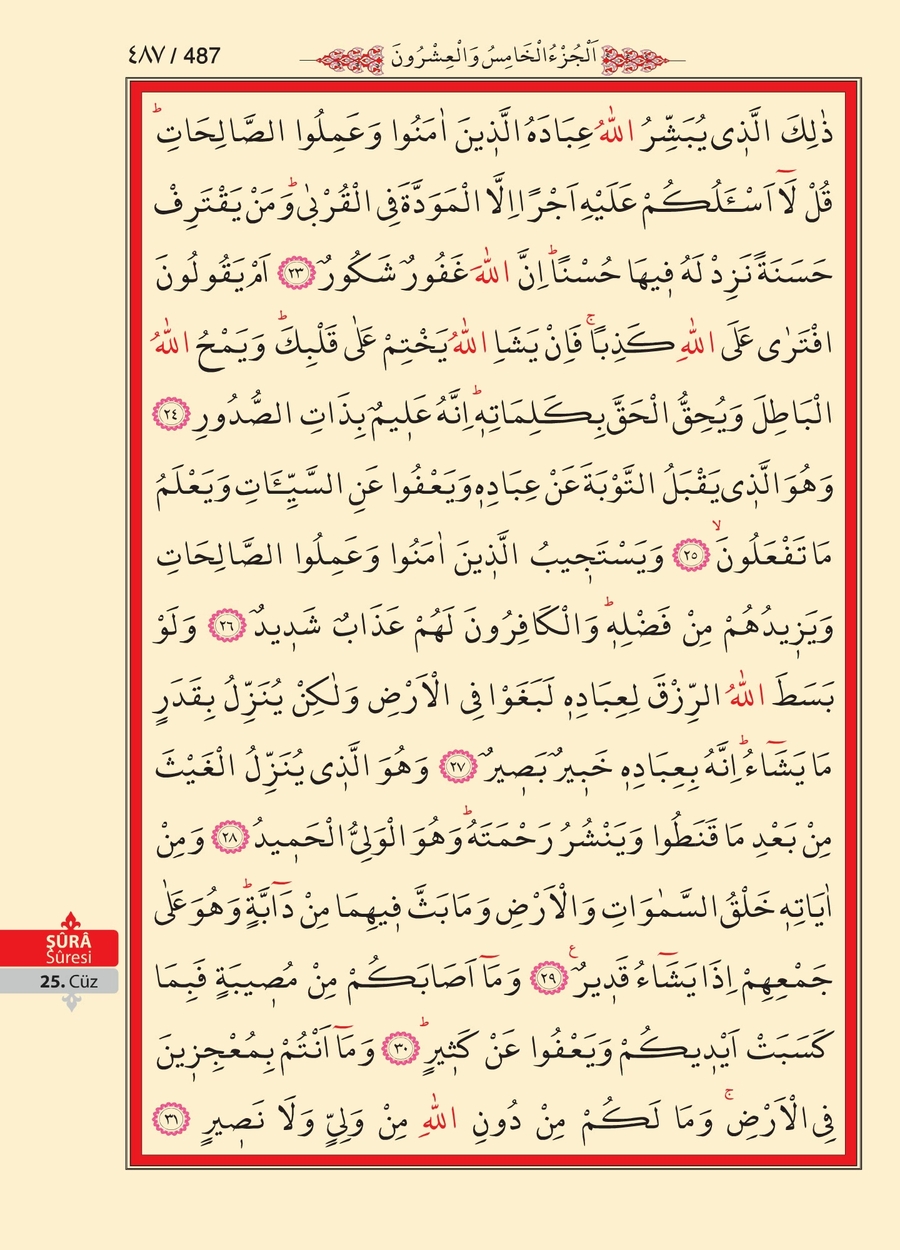 ٤٨٧ / 487
اَلْجُزْءُ الْخَامِسُ وَالْعِشْرُونَ
ذٰلِكَ الَّذ۪ى يُبَشِّرُ اللّٰهُ عِبَادَهُ الَّذ۪ينَ اٰمَنُوا وَعَمِلُوا الصَّالِحَاتِۜ
قُلْ لَٓا اَسْـَٔلُكُمْ عَلَيْهِ اَجْرًا اِلَّا الْمَوَدَّةَ فِى الْقُرْبٰىۜ وَمَنْ يَقْتَرِفْ
حَسَنَةً نَزِدْ لَهُ ف۪يهَا حُسْنًاۜ اِنَّ اللّٰهَ غَفُورٌ شَكُورٌ ﴿٢٣﴾ اَمْ يَقُولُونَ
افْتَرٰى عَلَى اللّٰهِ كَذِبًاۚ فَاِنْ يَشَاِ اللّٰهُ يَخْتِمْ عَلٰى قَلْبِكَۜ وَيَمْحُ اللّٰهُ
الْبَاطِلَ وَيُحِقُّ الْحَقَّ بِكَلِمَاتِه۪ۜ اِنَّهُ عَل۪يمٌ بِذَاتِ الصُّدُورِ ﴿٢٤﴾
وَهُوَ الَّذ۪ى يَقْبَلُ التَّوْبَةَ عَنْ عِبَادِه۪ وَيَعْفُوا عَنِ السَّيِّـَٔاتِ وَيَعْلَمُ
مَا تَفْعَلُونَۙ ﴿٢٥﴾ وَيَسْتَج۪يبُ الَّذ۪ينَ اٰمَنُوا وَعَمِلُوا الصَّالِحَاتِ
وَيَز۪يدُهُمْ مِنْ فَضْلِه۪ۜ وَالْكَافِرُونَ لَهُمْ عَذَابٌ شَد۪يدٌ ﴿٢٦﴾ وَلَوْ
بَسَطَ اللّٰهُ الرِّزْقَ لِعِبَادِه۪ لَبَغَوْا فِى الْاَرْضِ وَلٰكِنْ يُنَزِّلُ بِقَدَرٍ
مَا يَشَٓاءُۜ اِنَّهُ بِعِبَادِه۪ خَب۪يرٌ بَص۪يرٌ ﴿٢٧﴾ وَهُوَ الَّذ۪ى يُنَزِّلُ الْغَيْثَ
مِنْ بَعْدِ مَا قَنَطُوا وَيَنْشُرُ رَحْمَتَهُۜ وَهُوَ الْوَلِىُّ الْحَم۪يدُ ﴿٢٨﴾ وَمِنْ
اٰيَاتِه۪ خَلْقُ السَّمٰوَاتِ وَالْاَرْضِ وَمَا بَثَّ ف۪يهِمَا مِنْ دَٓابَّةٍۜ وَهُوَ عَلٰى
جَمْعِهِمْ اِذَا يَشَٓاءُ قَد۪يرٌ۟ ﴿٢٩﴾ وَمَٓا اَصَابَكُمْ مِنْ مُص۪يبَةٍ فَبِمَا
كَسَبَتْ اَيْد۪يكُمْ وَيَعْفُوا عَنْ كَث۪يرٍۜ ﴿٣٠﴾ وَمَٓا اَنْتُمْ بِمُعْجِز۪ينَ
فِى الْاَرْضِۚ وَمَا لَكُمْ مِنْ دُونِ اللّٰهِ مِنْ وَلِىٍّ وَلَا نَص۪يرٍ ﴿٣١﴾
ŞÛRÂ
Sûresi
25. Cüz